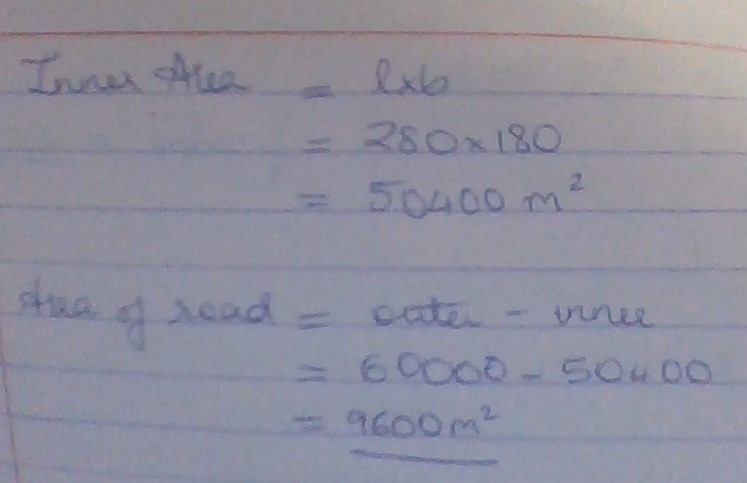 Inner Area = l×b
= 280×180
= 50400 m²
Area of road = outer - inner
= 60000 - 50400
= 9600m²